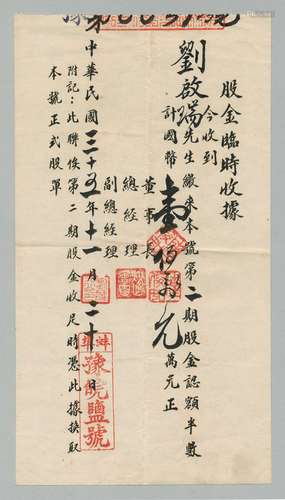 股金臨時收據
今收到
劉啟瑞先生繳來本號第二期股金認額半數
計國幣壹佰萬元萬元正
董事長
總經理
副總經理
中華民國三十五年十一月二十日
附記:此聯俟第二期股金收足時憑此據換取
本號正式股單
蚌埠
豫皖鹽號